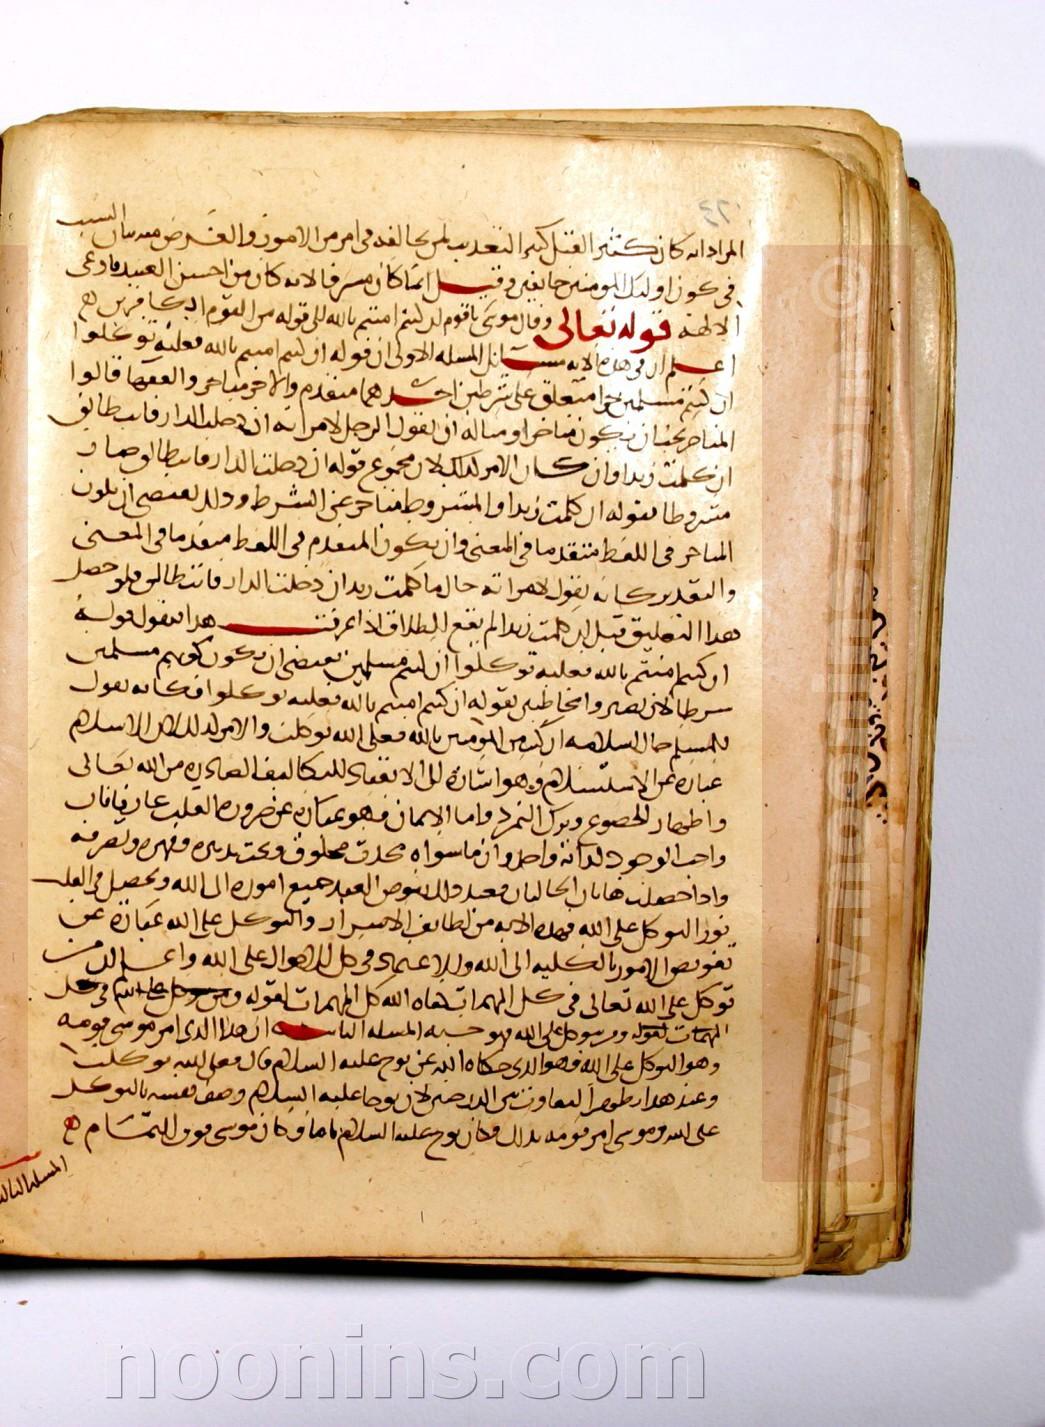 المراد انه كان كثير القتل كثير التعذيب لمن يخالفه في امر من الامور والغرض منه بيان السبب
في كون اولئك المومنين خائفين وقيل انما كان مسرفا لانه كان من اخس العبيد فادعى
الالهية قوله تعالى وقال موسى يا قوم ان كنتم امنتم بالله الى قوله من القوم الكافرين
اعلم ان في هذه الاية مسائل المسلة الاولى ان قوله ان كنتم امنتم بالله فعليه توكلوا
ان كنتم مسلمين جزا معلق على شرطين احدهما متقدم والاخر متاخر والفقها قالوا
المتاخر يجب ان يكون متقدما ومثاله ان يقول الرجل لامراته ان دخلت الدار فانت طالق
ان كلمت زيدا وان كان الامر كذلك لان مجموع قوله ان دخلت الدار فانت طالق صار
مشروطا بقوله ان كلمت زيدا والمشروط متاخر عن الشرط وذلك يقتضي ان يكون
المتاخر في اللفظ متقدما في المعنى وان يكون المتقدم في اللفظ متاخرا في المعنى
والتقدير كانه يقول لامراته حال ما كلمت زيدا ان دخلت الدار فانت طالق فلو حصل
هذا التعليق قبل ان كلمت زيدا لم يقع الطلاق اذا عرفت هذا فنقول قوله
ان كنتم امنتم بالله فعليه توكلوا ان كنتم مسلمين يقتضي ان يكون كونهم مسلمين
شرطا لان يصيروا مخاطبين بقوله ان كنتم امنتم بالله فعليه توكلوا فكانه يقول
للمسلم حال اسلامه ان كنت من المومنين بالله فعلى الله توكلت والامر كذلك لان الاسلام
عبارة عن الاستسلام وهو اشارة الى الانقياد للتكاليف الصادرة من الله تعالى
واظهار الخضوع وترك التمرد واما الايمان فهو عبارة عن صيرورة القلب عارفا بان
واجب الوجود لذاته واحد وان ما سواه محدث مخلوق وتحت تدبيره وقهره وتصرفه
واذا حصلت هاتان الحالتان فعند ذلك يفوض العبد جميع اموره الى الله ويحصل في القلب
نور التوكل على الله فهذه الاية من لطايف الاسرار والتوكل على الله عبارة عن
تفويض الامور بالكلية الى الله والاعتماد في كل الاحوال على الله واعلم ان من
توكل على الله تعالى في كل المهمات كفاه الله كل المهمات لقوله ومن يتوكل على الله في كل
المهمات لقوله ومن يتوكل على الله فهو حسبه المسلة الثانية ان هذا الذي امر موسى قومه
وهو التوكل على الله فهو الذي حكاه الله عن نوح عليه السلام قال فعلى الله توكلت
وعند هذا يظهر التفاوت بين الدرجتين لان نوحا عليه السلام وصف نفسه بالتوكل
على الله وموسى امر قومه بذلك وكان نوح عليه السلام تاما وكان موسى فوق التمام
المسلة الثالثة
www.noonins.com
noonins.com